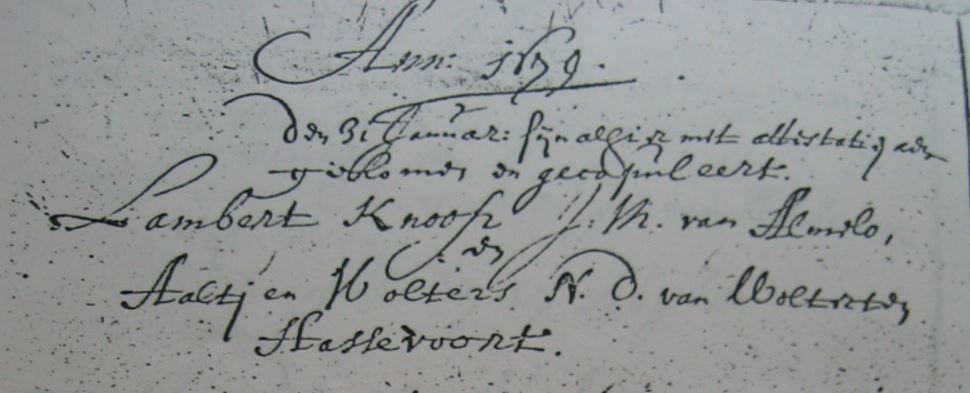 Ann: 1679.
Den 31 Januar: sijn alhier mit attestatij aen
gekomen en gecopuleert.
Lambert Knoop J: M. van Almelo,
en
Aaltjen Wolters N. D. van Wolter ten
Hassevoort.